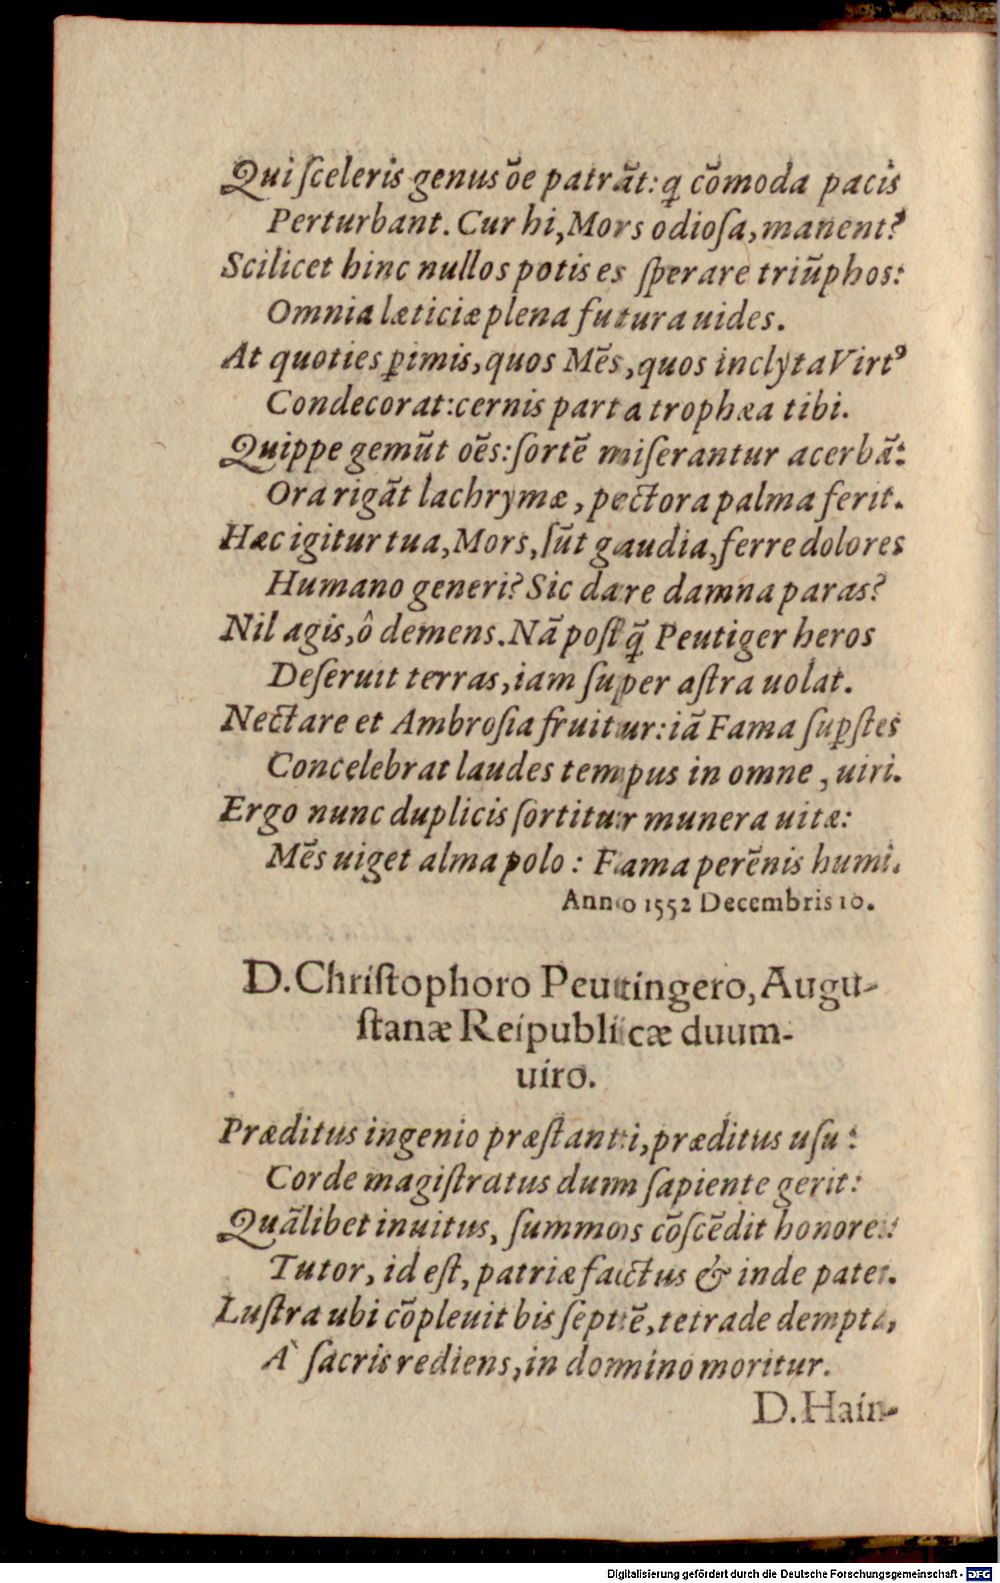 Qui ſceleris genus õe patrãt: q̃ cõmoda pacis
Perturbant. Cur hi, Mors odioſa, manent?
Scilicet hinc nullos potis es ſperare triũphos:
Omnia læticiæ plena futura uides.
At quoties p̱imis, quos Mẽs, quos inclyta Virtꝰ
Condecorat: cernis parta trophæa tibi.
Quippe gemũt oẽs: ſortẽ miſerantur acerbã:
Ora rigãt lachrymæ, pectora palma ferit.
Hæc igitur tua, Mors, ſũt gaudia, ferre dolores
Humano generi? Sic dare damna paras?
Nil agis, ô demens. Nã poſtq̃ Peutiger heros
Deſeruit terras, iam ſuper aſtra uolat.
Nectare et Ambroſia fruitur: iã Fama ſuꝑſtes
Concelebrat laudes tempus in omne, uiri.
Ergo nunc duplicis ſortitur munera uitæ:
Mẽs uiget alma polo: Fama perẽnis humi.
Anno 1552 Decembris 10.
D. Chriſtophoro Peutingero, Augu-
ſtanæ Reipublicæ duum-
uiro.
Præditus ingenio præſtanti, præditus uſu:
Corde magiſtratus dum ſapiente gerit:
Quãlibet inuitus, ſummos cõſcẽdit honores:
Tutor, id eſt, patriæ factus & inde pater.
Luſtra ubi cõpleuit bis ſeptẽ, tetrade dempta,
A` ſacris rediens, in domino moritur.
D. Hain-
Digitalisierung gefördert durch die Deutsche Forschungsgemeinschaft - DFG